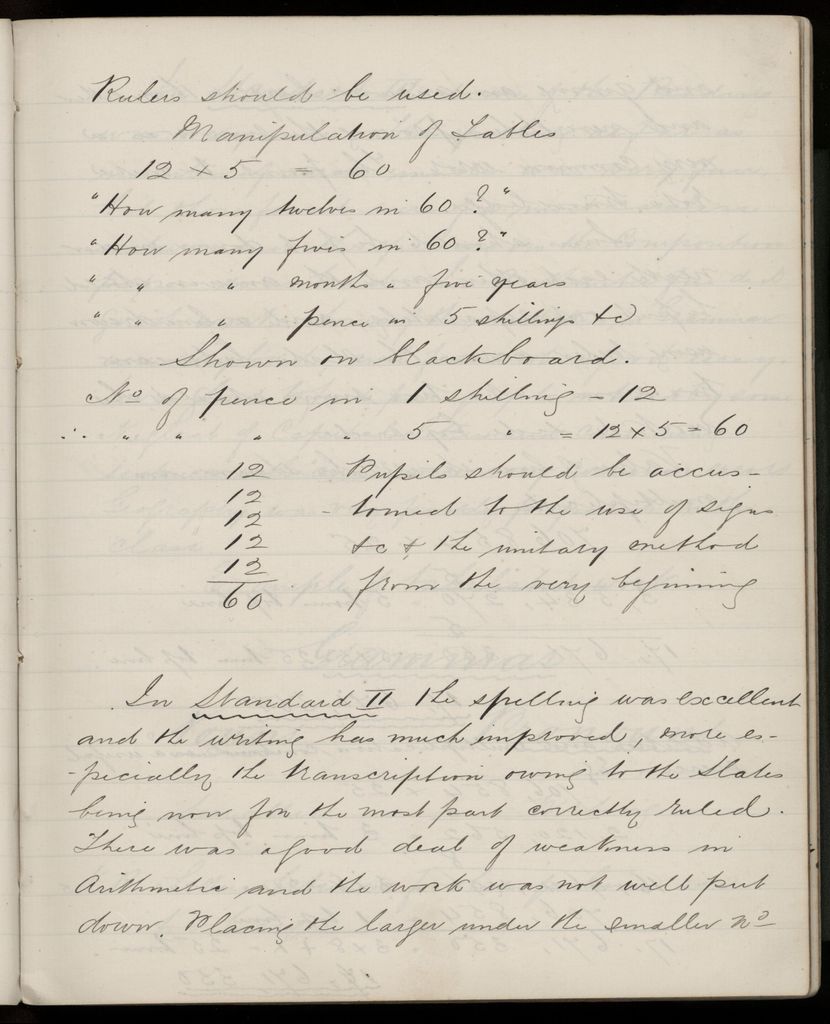 Rulers should be used.
Manipulation of Tables
12 x 5 = 60
"How many twelves in 60 ?"
"How many fives in 60 ?"
" " " months " five years
" " " pence in 5 shillings &c
Shown on blackboard.
No of pence in 1 shilling - 12
∴ " " " " 5 " = 12 x 5 = 60
12 Pupils should be accus-
12
12 - tomed to the use of signs
12 &c & the unitary method
12 from the very beginning
60
In Standard II the spelling was excellent
and the writing has much improved, more es-
-pecially the transcription owing to the slates
being now for the most part correctly ruled.
There was a good deal of weakness in
Arithmetic and the work was not well put
down. Placing the larger under the smaller No